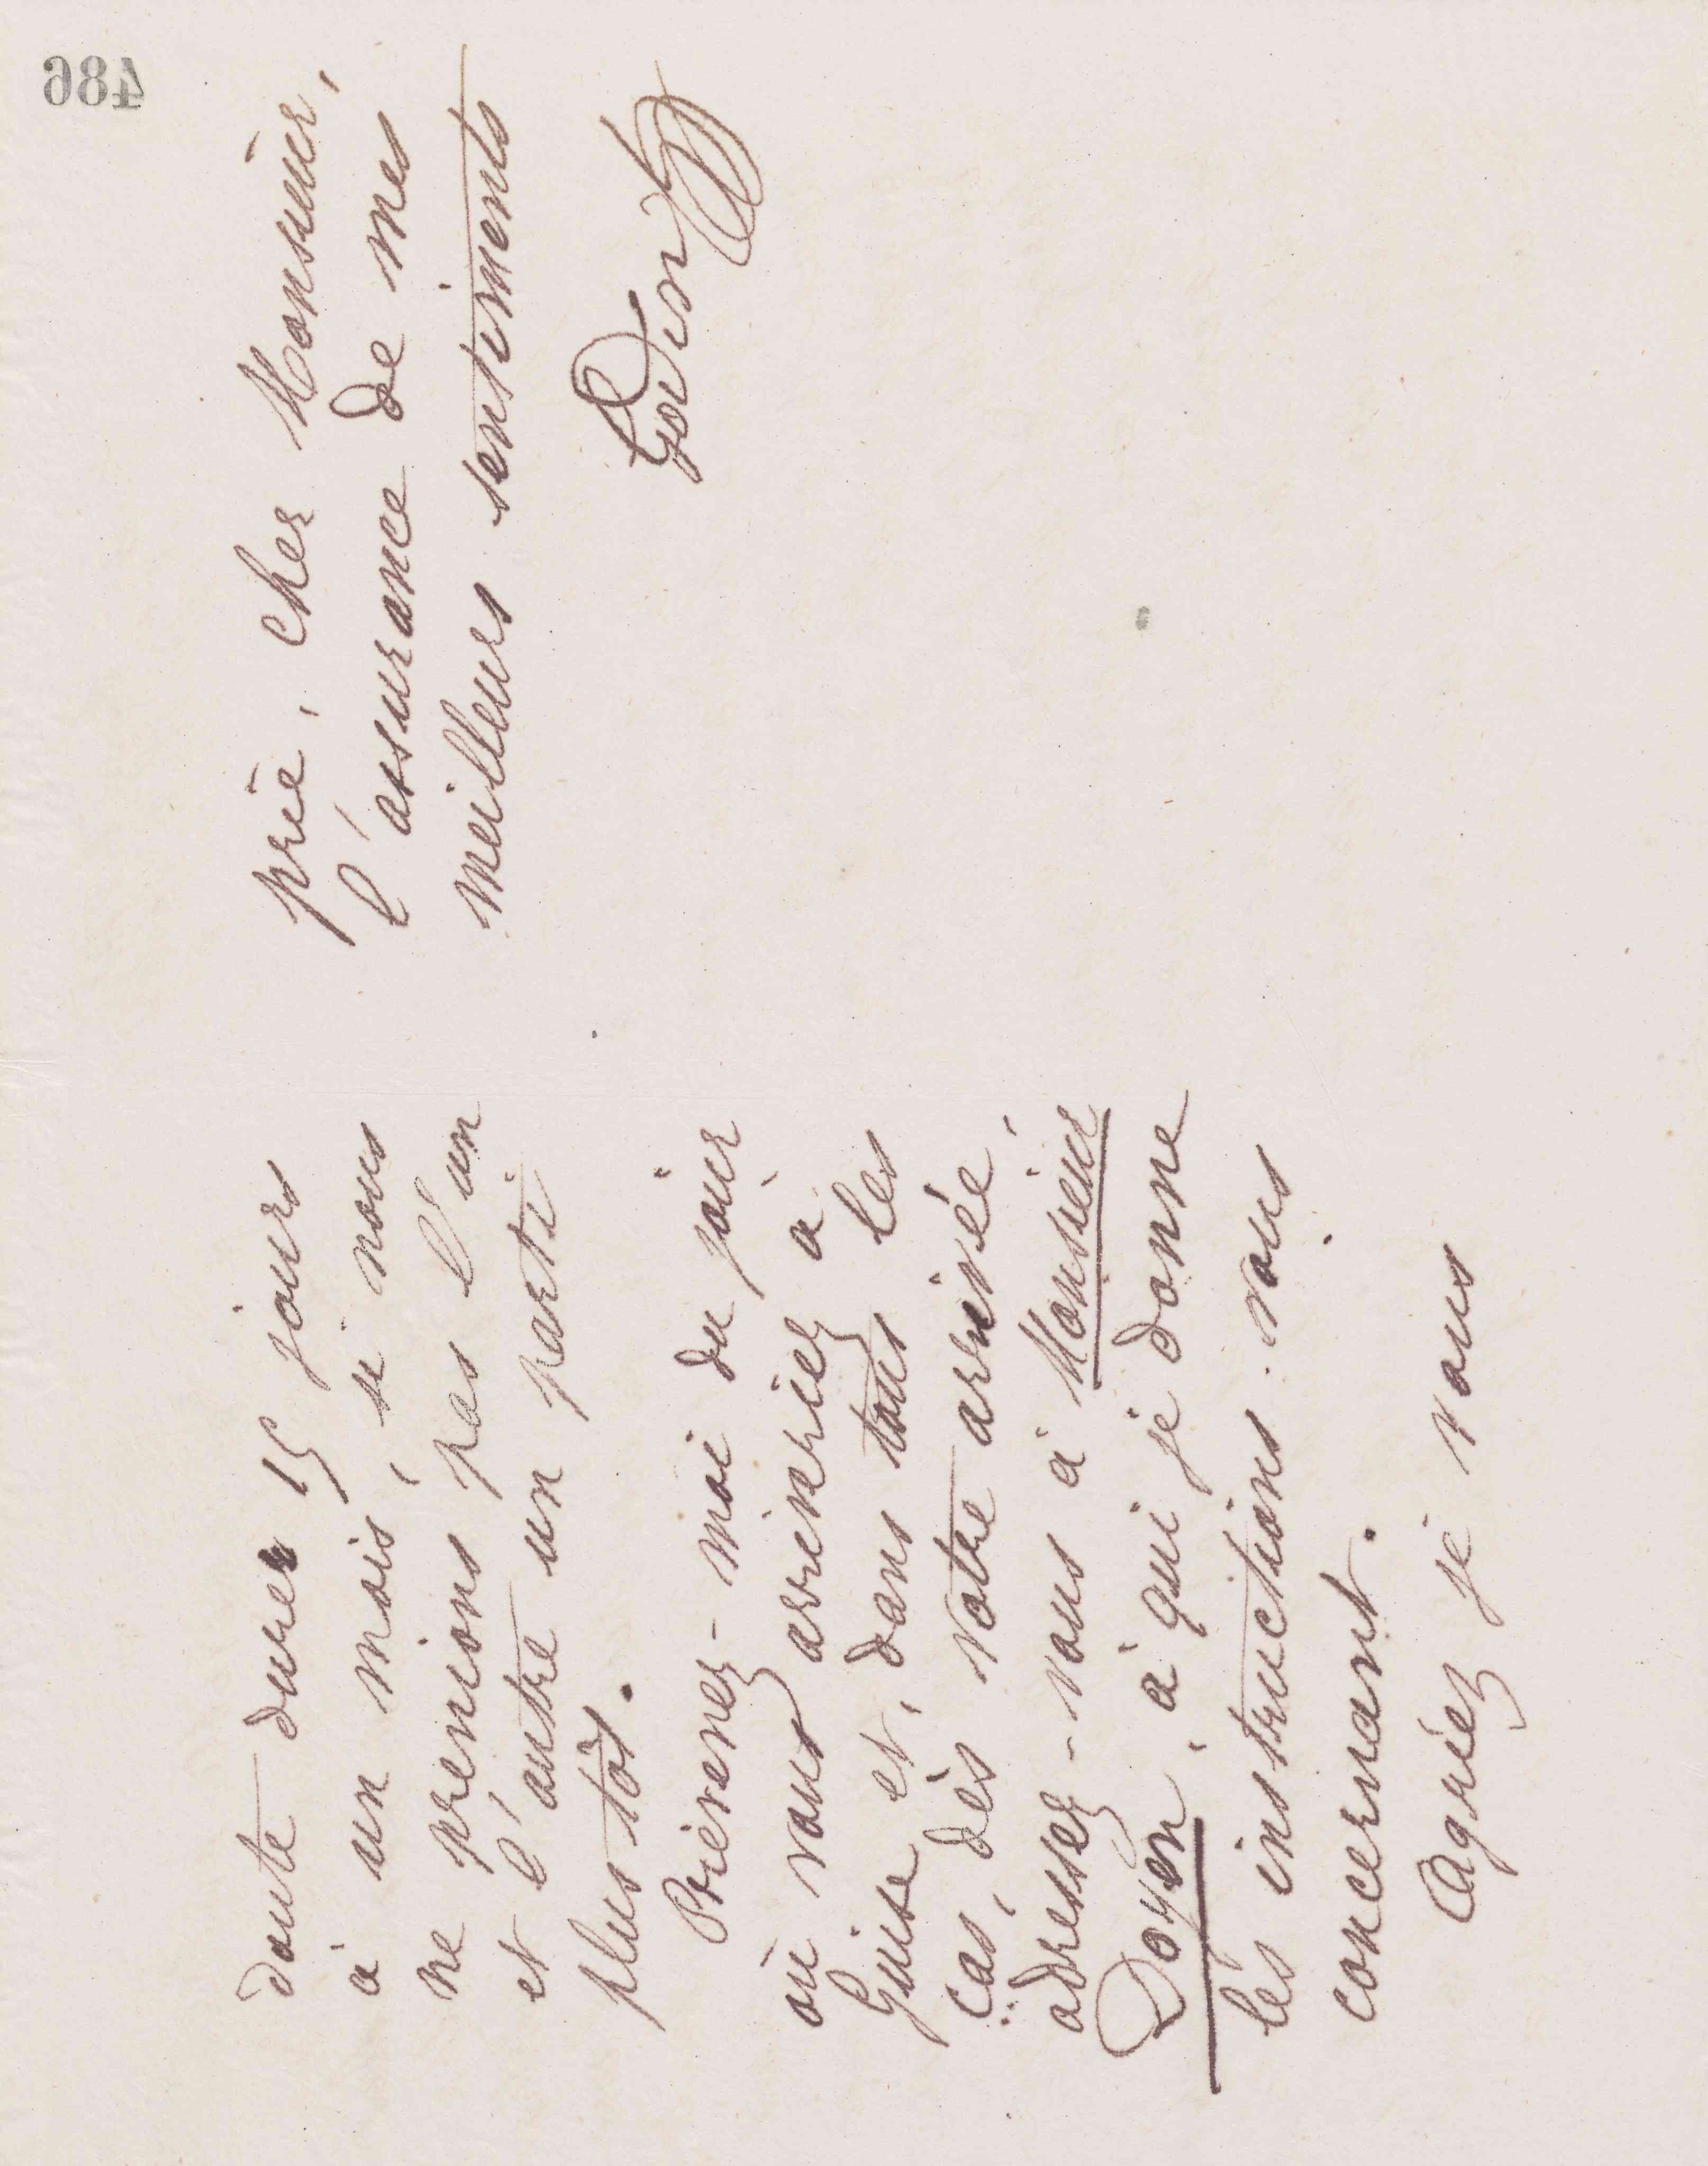 486
doute durer 15 jours
à un mois, si nous
ne prenions pas l'un
et l'autre un parti
plus tôt.
Prévenez-moi du jour
où vous arriveriez à
Guise et, dans tous les
cas, dès votre arrivée,
adressez-vous à Monsieur
Doyen, à qui je donne
les instructions vous
concernant.
Agréez je vous
prie, cher Monsieur,
l'assurance de mes
meilleurs sentiments
Godin